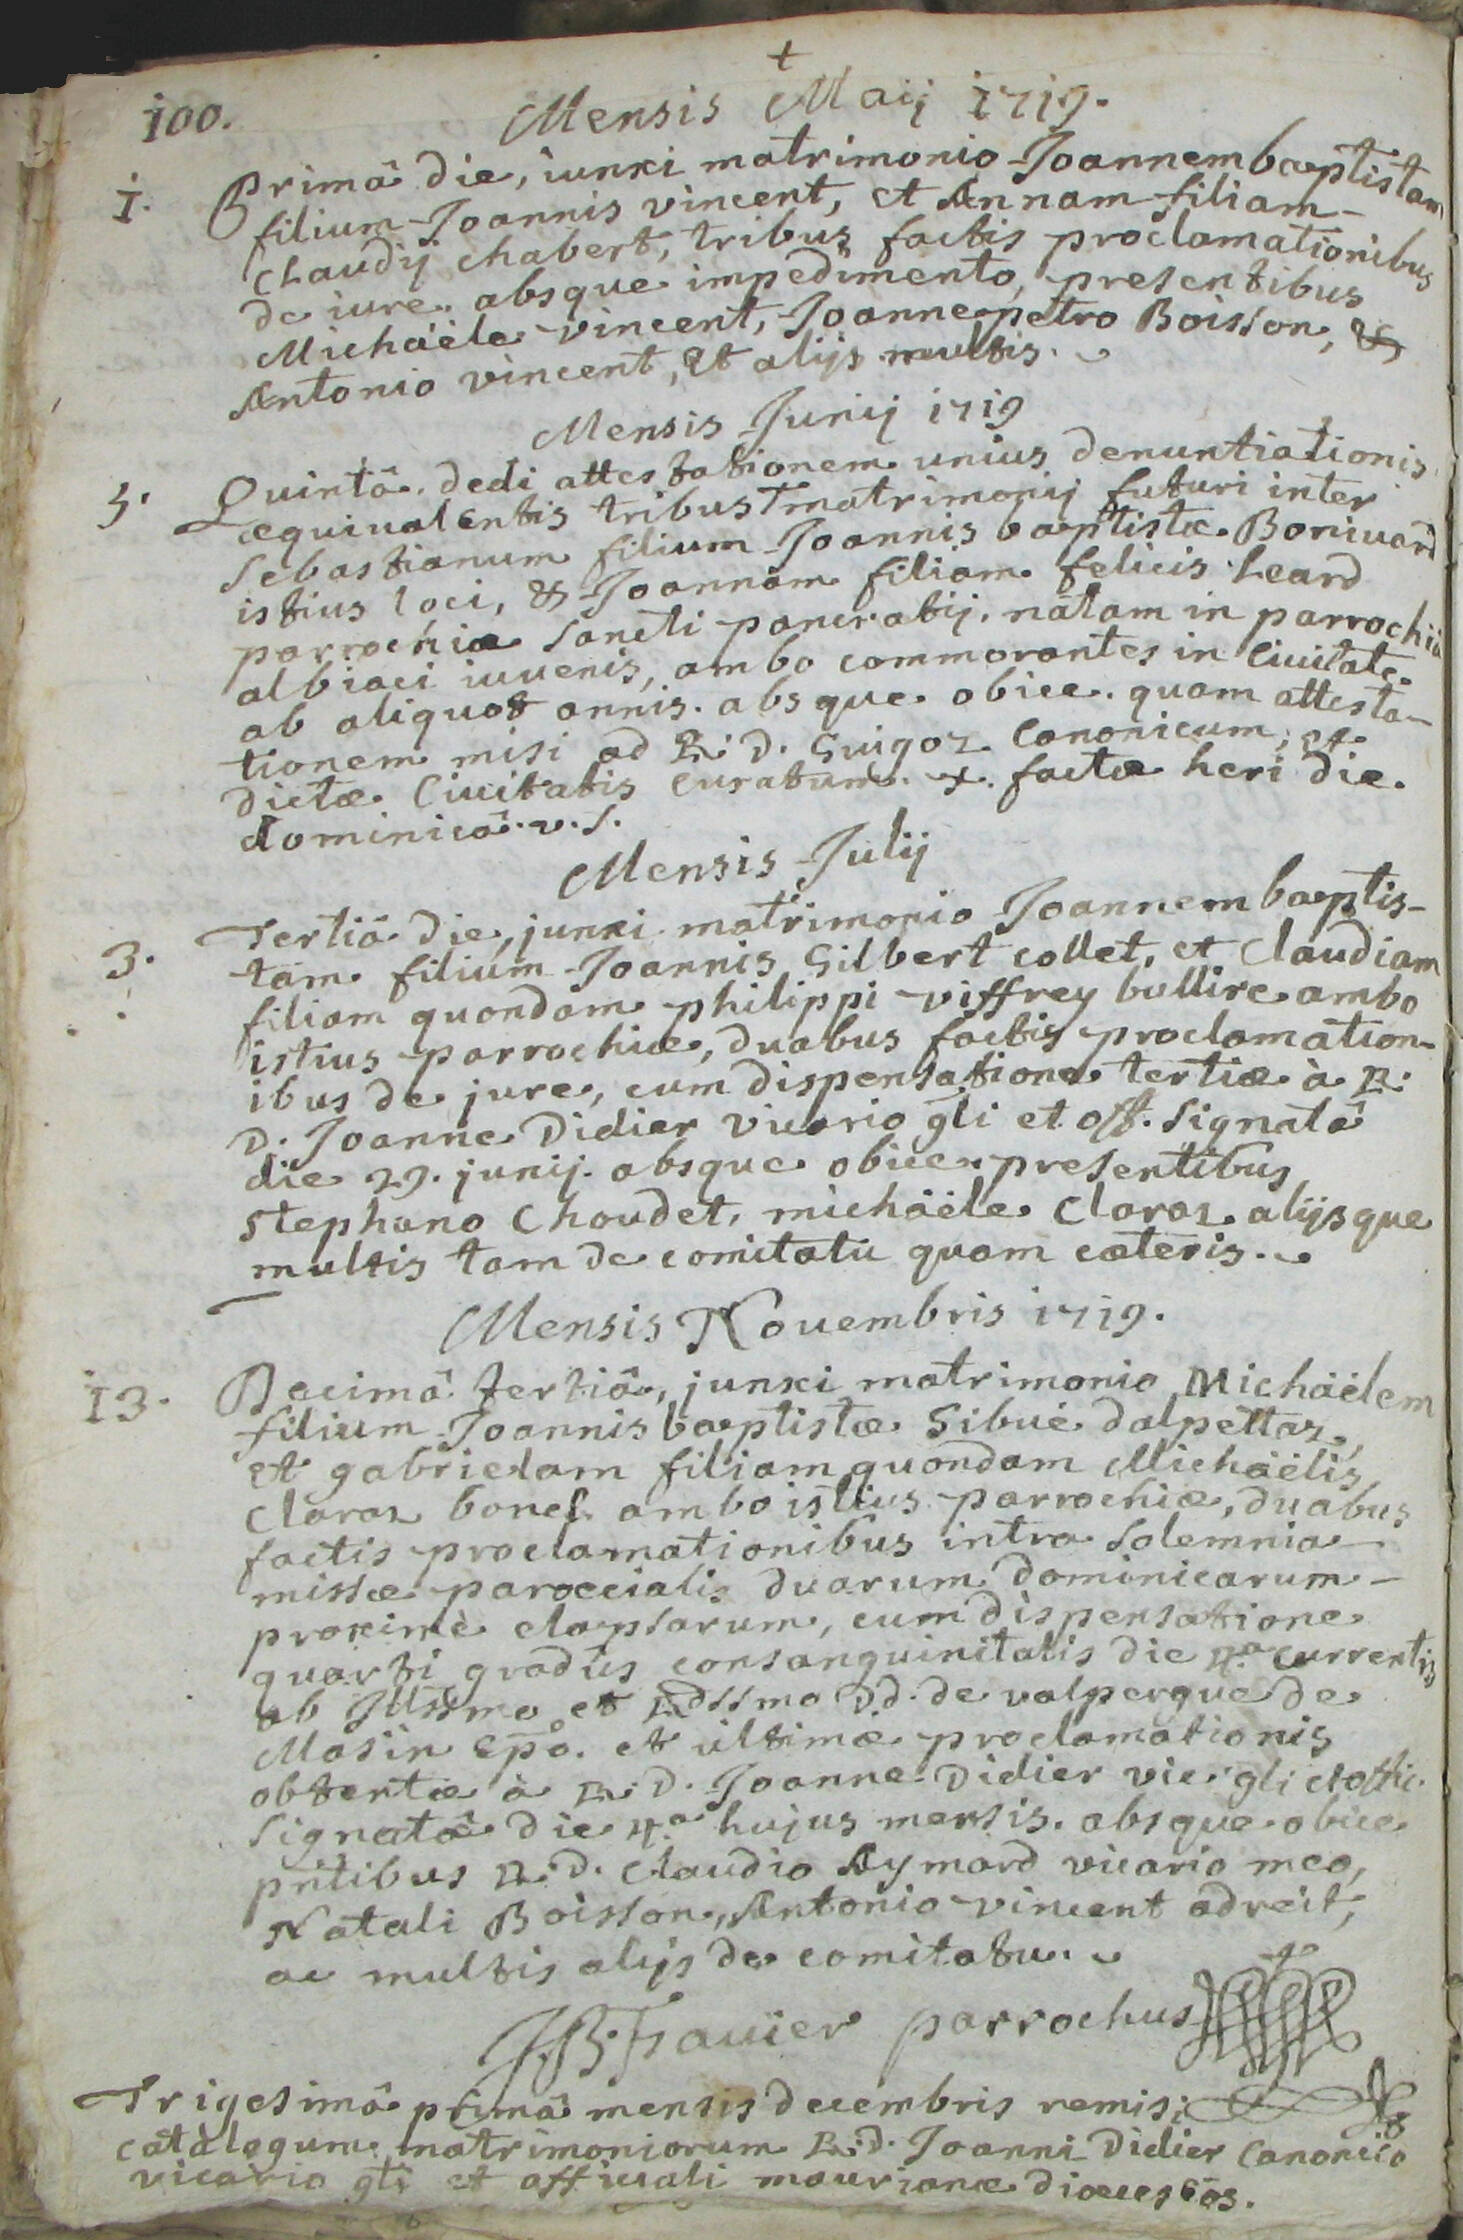 +
100.
Mensis Maij 1719.
1. Primâ die, iunxi matrimonio Joannem baptistam
filium Joannis vincent, et Annam filiam
Claudij chabert, tribus factis proclamationibus
de iure. absque impedimento, presentibus
Michaële vincent, Joannepetro Boisson, &
Antonio vincent, et alijs multis.
Mensis Junij 1719
5. Quintâ. dedi attestationem unius denuntiationis
æquiualentis tribus matrimonij futuri inter
Sebastianum filium Joannis baptistæ Boniuard
istius loci, & Joannam filiam felicis Leard
parrochiæ Sancti pancratij. natam in parrochia
albiaci iuuenis, ambo commorantes in Ciuitate
ab aliquot annis. absque obice. quam attesta-
tionem misi ad R: D. Guigoz Canonicum, et
dictæ Ciuitatis Curatum. x. factæ heri die
dominicâ. v. s.
Mensis Julij
3. Tertiâ die, junxi matrimonio Joannem baptis-
tam filium Joannis Gilbert collet, et Claudiam
filiam quondam philippi viffrey bullire ambo
istius parrochiæ, duabus factis proclamation-
ibus de jure, cum dispensatione tertiæ à R:
D. Joanne Didier vicario gli et off. Signatâ
die 29. junij. absque obice. presentibus
Stephano Choudet, michaële Claraz alijsque
multis tam de comitatu quam cæteris.
Mensis Nouembris 1719.
13. Decimâ tertiâ, junxi matrimonio Michaëlem
filium Joannis baptistæ Sibué dalpettaz,
et gabrielam filiam quondam Michaëlis
Claraz bonel ambo istius parrochiæ, duabus
factis proclamationibus intra Solemnia
missæ paroccialis duarum dominicarum
proximè elapsarum, cum dispensatione
quarti gradûs consanguinitatis die 4.a currentis
ab Illssmo et Rdssmo DD. de valpergue de
Masin Epô. et ultimæ proclamationis
obtentæ à R: D. Joanne Didier vic. gli et offic.
Signatâ die 4.a hujus mensis. absque obice
pntibus R: D. Claudio Aymard vicario meo,
Natali Boisson, Antonio vincent adreit,
ac multis alijs de comitatu.
JB. Favier parrochus
Trigesimâ primâ mensis decembris remisi
catalogum matrimoniorum R: D. Joanni Didier Canonico
vicario gli et officiali maurianæ diœcesëos.